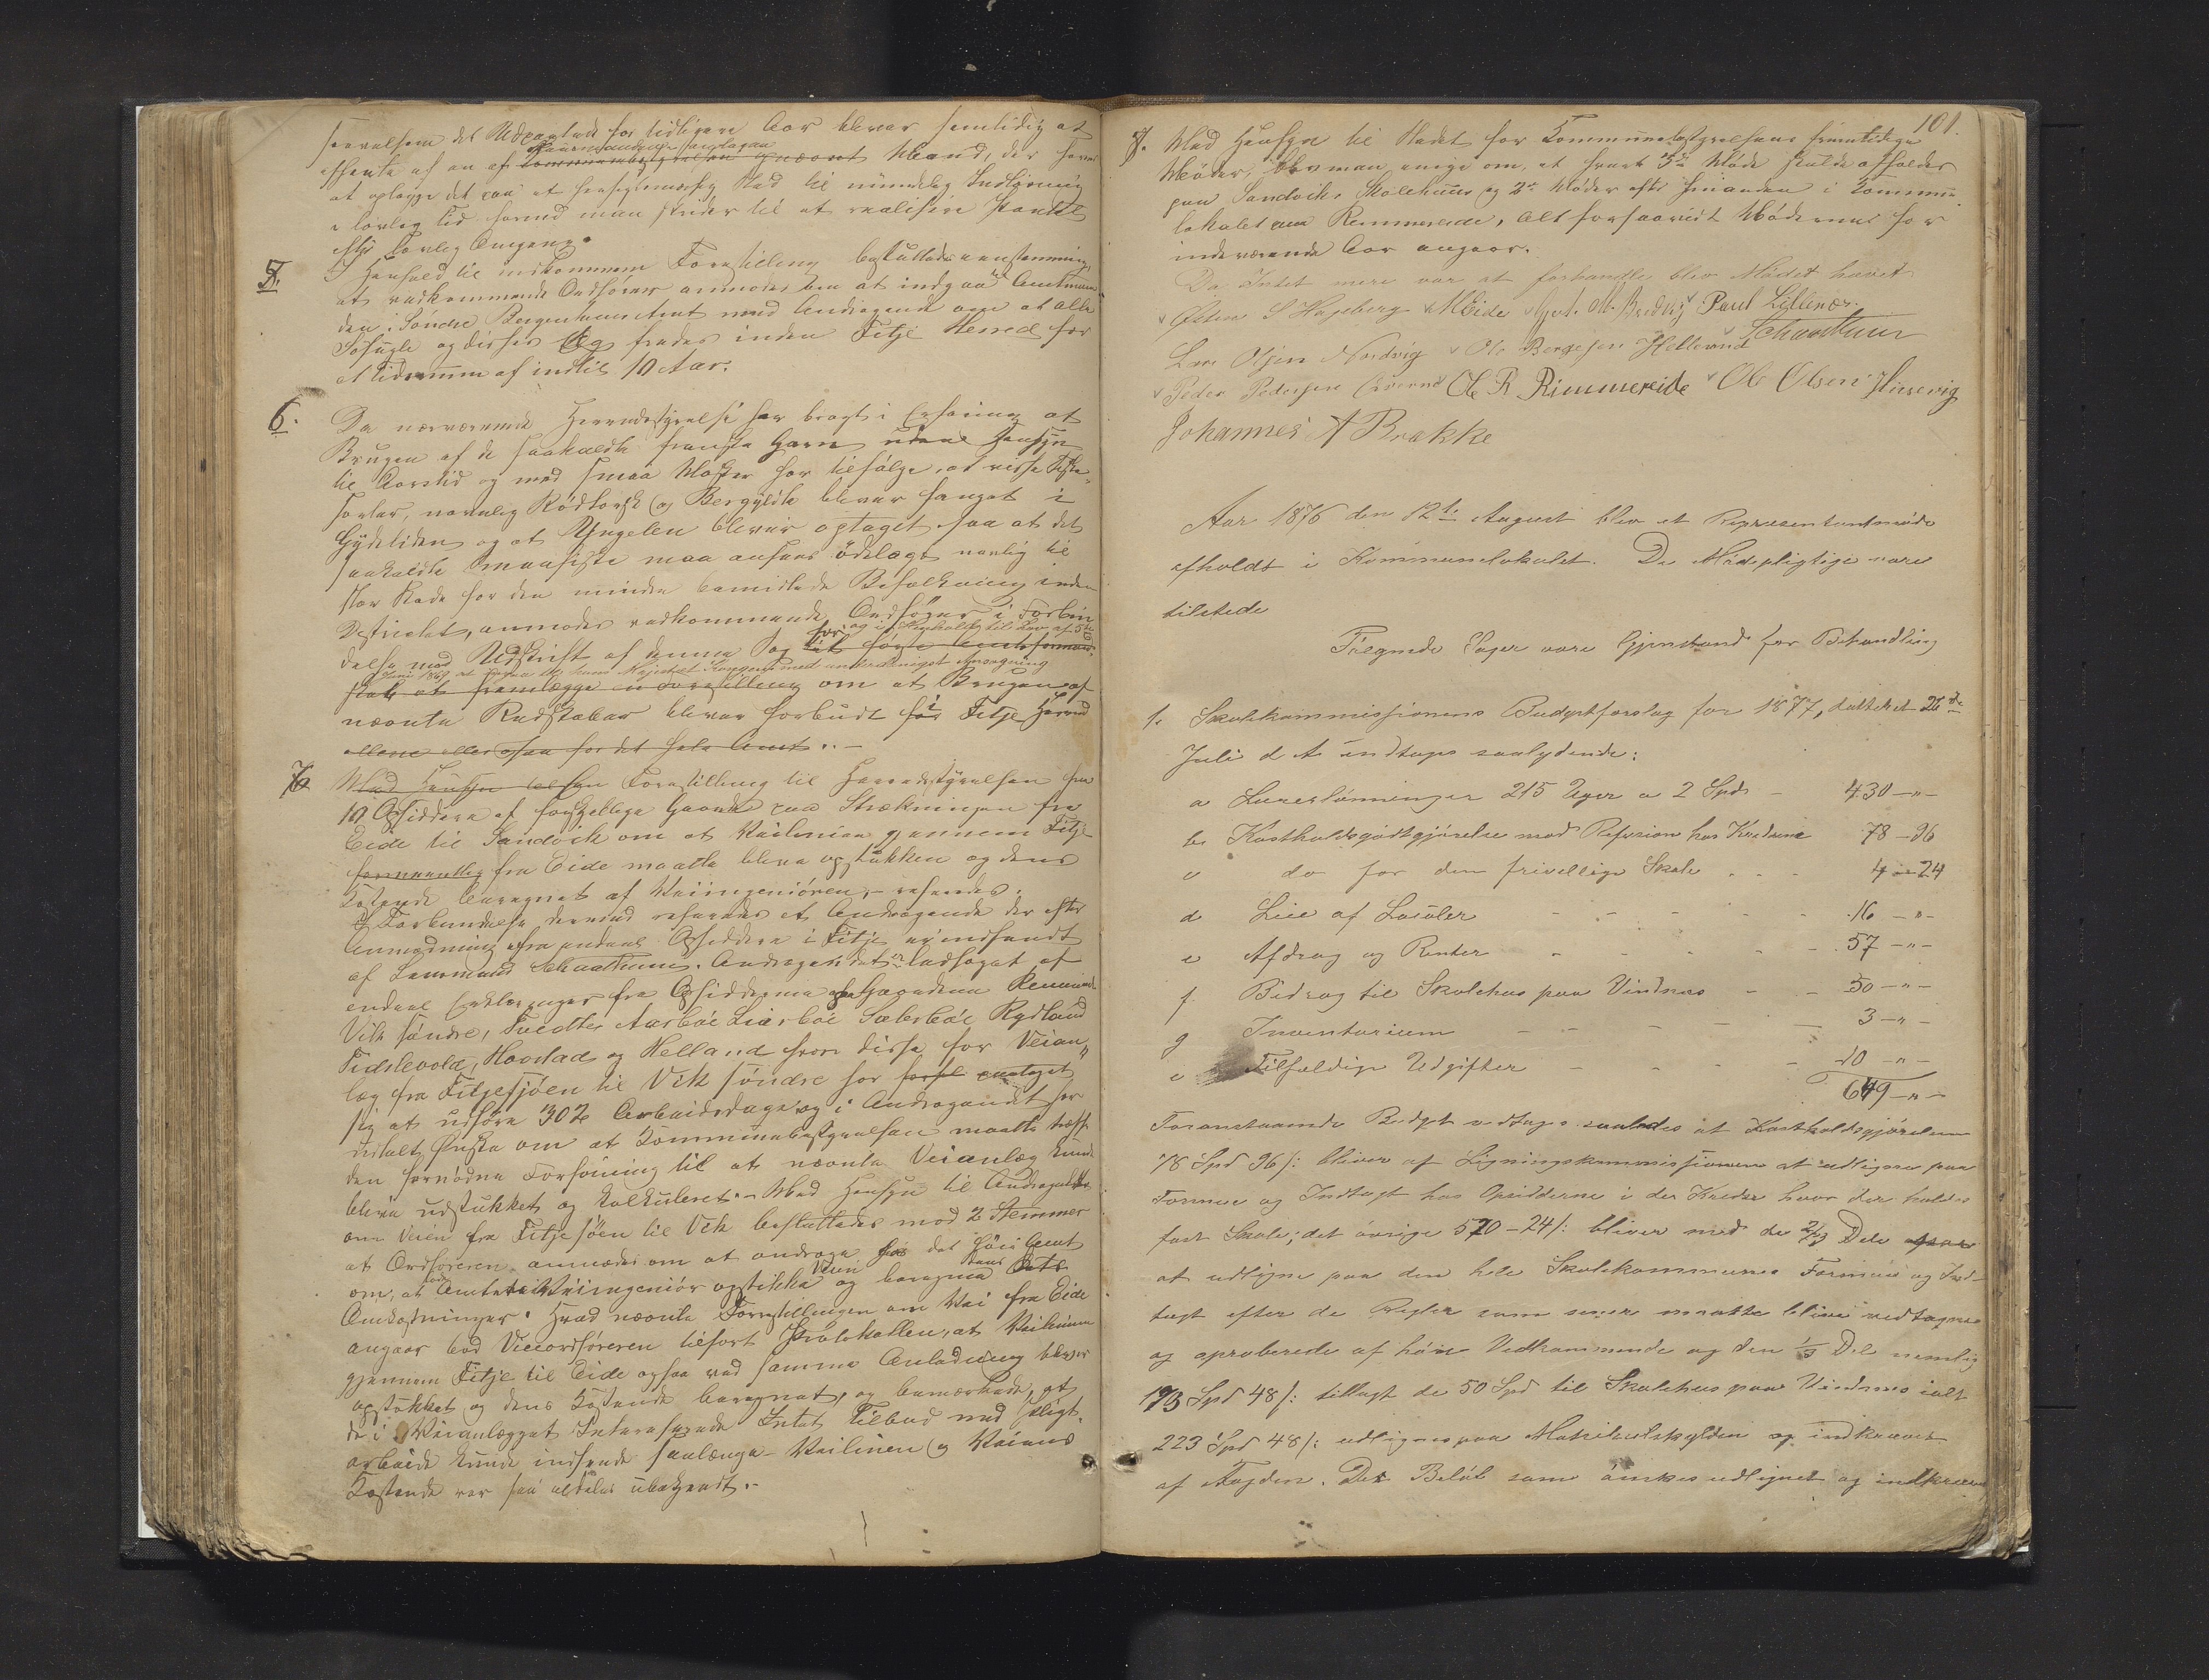 det Udpantede for tidligere Aar bliver samtidig at
Formandens
afhente af en af Kommunebestyrelsen Mand, der
at oplægge det paa et hensigtsmæssig Stad til mindelig Indløsning
i lovlig Tid forend man skrider til at realisere Pantet
efter lovlig Omgang.
5. I Henhold til indkommen Forestilling besluttedes eenstemmig,
at vedkommende Ordfører anmodes om at indgaa til Amtman-
den i Søndre Bergenhuus Amt med Andragende om at alle
Søfugle og disses Eg fredes inden Fitje Herred for
et Tidsrumm af indtil 10 Aar.
6. Da nærværende Herredsstyrelse har bragt i Erfaring at
Brugen af de saakaldte franske Garn uden Hensyn
til Aarstid og med smaa Masker har tilfølge, at visse Fiske-
sorter, navnlig Rødtorsk og Berggylte bliver fanget i
Gydetiden og at Yngelen bliver optaget saa at det
saakaldte Smaafiske maa ansees ødelagt navnlig til
stor Skade for den mindre bemidlede Befolkning inden
Districtet, anmodes vedkommende Ordfører i Forbin-
og i Henhold til Lov af 5te
delse med Udskrift af denne Sag
Juni 1869 at hans Majestæt Kongen med underdanigst Ansøgning
skab at fremlægge en Forestilling om at Brugen af
nævnte Redskaber bliver forbudt for Fitje Herred
allene eller ogsaa for det hele Amt. -
7. Med Hensyn til en Forestilling til Herredsstyrelsen fra
10 Opsiddere af forskjellige Gaarde paa Strækningen fra
Eide til Sandvik om at Veilinien gjennem Fitje
fra Eide maatte blive opstukken og dens
Kostende beregnet af Veiingeniøren, - refereredes.
I Forbindelse dermed refereredes et Andragende der efter
Anmodning fra endeel Opsiddere i Fitje er indsendt
af Lensmand Schaathun. Andragendet er ledsaget af
endeel Erklæringer fra Opsidderne paa Gaardene Rimmereid
Vik søndre, Tveitte Aarbøe Liarbøe Sælebøe Rydland
Tislevold, Hovstad og Helland hvori disse for Veian-
læg fra Fitjesjøen til Vik søndre har paataget
sig at udføre 302 Arbeidsdage og i Andragendet er
udtalt Ønske om at Kommunebestyrelsen maatte træffe
den fornødne Forføining til at nævnte Veianlæg kunde
blive udstukket og kalkuleret. - Med Hensyn til Andragendet
om Veien fra Fitjesøen til Vik besluttedes mod 2 Stemmer
at Ordføreren anmodes om at andrage for det høie Amt
om, at Amtets Veiingeniør opstikke Veien og beregne dens
Omkostninger. Hvad nævnte Forestillingen om Vei fra Eide
angaar bød Viceordføreren tilført Protokollen, at Veilinien
gjennem Fitje til Eide ogsaa ved samme Anledning bliver
opstukket og dens Kostende beregnet, og bemærkede, at
de i Veianlægget Interesserede Intet Tilbud med Pligt-
arbeide kunde indsende saalænge Veilinien og Veiens
Kostende var saa aldeles ubekjendt. -
101.
8. Med Hensyn til Stedet for Kommunebestyrelsens fremtidige
Møder, blev man enige om, at hvert 3die Møde skulde afholdes
paa Sandvik, Skolehuus og 2de Møder efter hinanden i Kommune-
lokalet paa Rimmereide, Alt forsaavidt Møderne for
indeværende Aar angaar.
Da Intet mere var at forhandle blev Mødet hævet
Østen S Hageberg M Eide Gert M. Bredvig Paul Lillenæs.
Lars Olsen Nordvig Ole Bergesen Hellerud Schaathun
Peder Pedersen Ole R. Rimmereide Ole Olsen Hisevig
Johannes A Brække
Aar 1876 den 12te August blev et Representantmøde
afholdt i Kommunelokalet. De Mødepligtige vare
tilstede
Følgende Sager vare Gjenstand for Behandling
1. Skolekommissionens Budgetforslag for 1877, dateret 26de
Juli d. A. indtages saalydende:
a Lærerlønninger 215 Uger a 2 Spd - 430 - " -
b Kostholdsgodtgjørelse med Refusion hos Kredsene 78 - 96
c do for den frivillige Skole . . - 4 - 24
d Leie af Localer - - - - - 16 - " -
e Afdrag og Renter - - - - 57 - " -
f. Bidrag til Skolehus paa Vindnes - - 50 - " -
g Inventarium - - - - - 3 - " -
Tilfeldige Udgifter - - - - 10 - " -
649 - " -
Foranstaaende Budget vedtages saaledes at Kostholdsgjørelsen
78 Spd 96 /: bliver af Ligningskommissionen at udligne paa
Formue og Indtægt hos Opsidderne i der Kredse hvor der holdes
fast Skole; det øvrige 570 - 24 /: bliver med de 2/3 Dele
at udligne paa den hele Skolekommunes Formue og Ind-
tægt efter de Regler som senere maatte blive vedtagne
og aproberede af høie Vedkommende og den 1/3 Del nemlig
173 Spd 48 /: tillagt de 50 Spd til Skolehus paa Vindnes ialt
223 Spd 48 /: udlignes paa Matrikulskylden og indkræves
af Fogden. Det Beløb som ønskes udlignet og indkræve